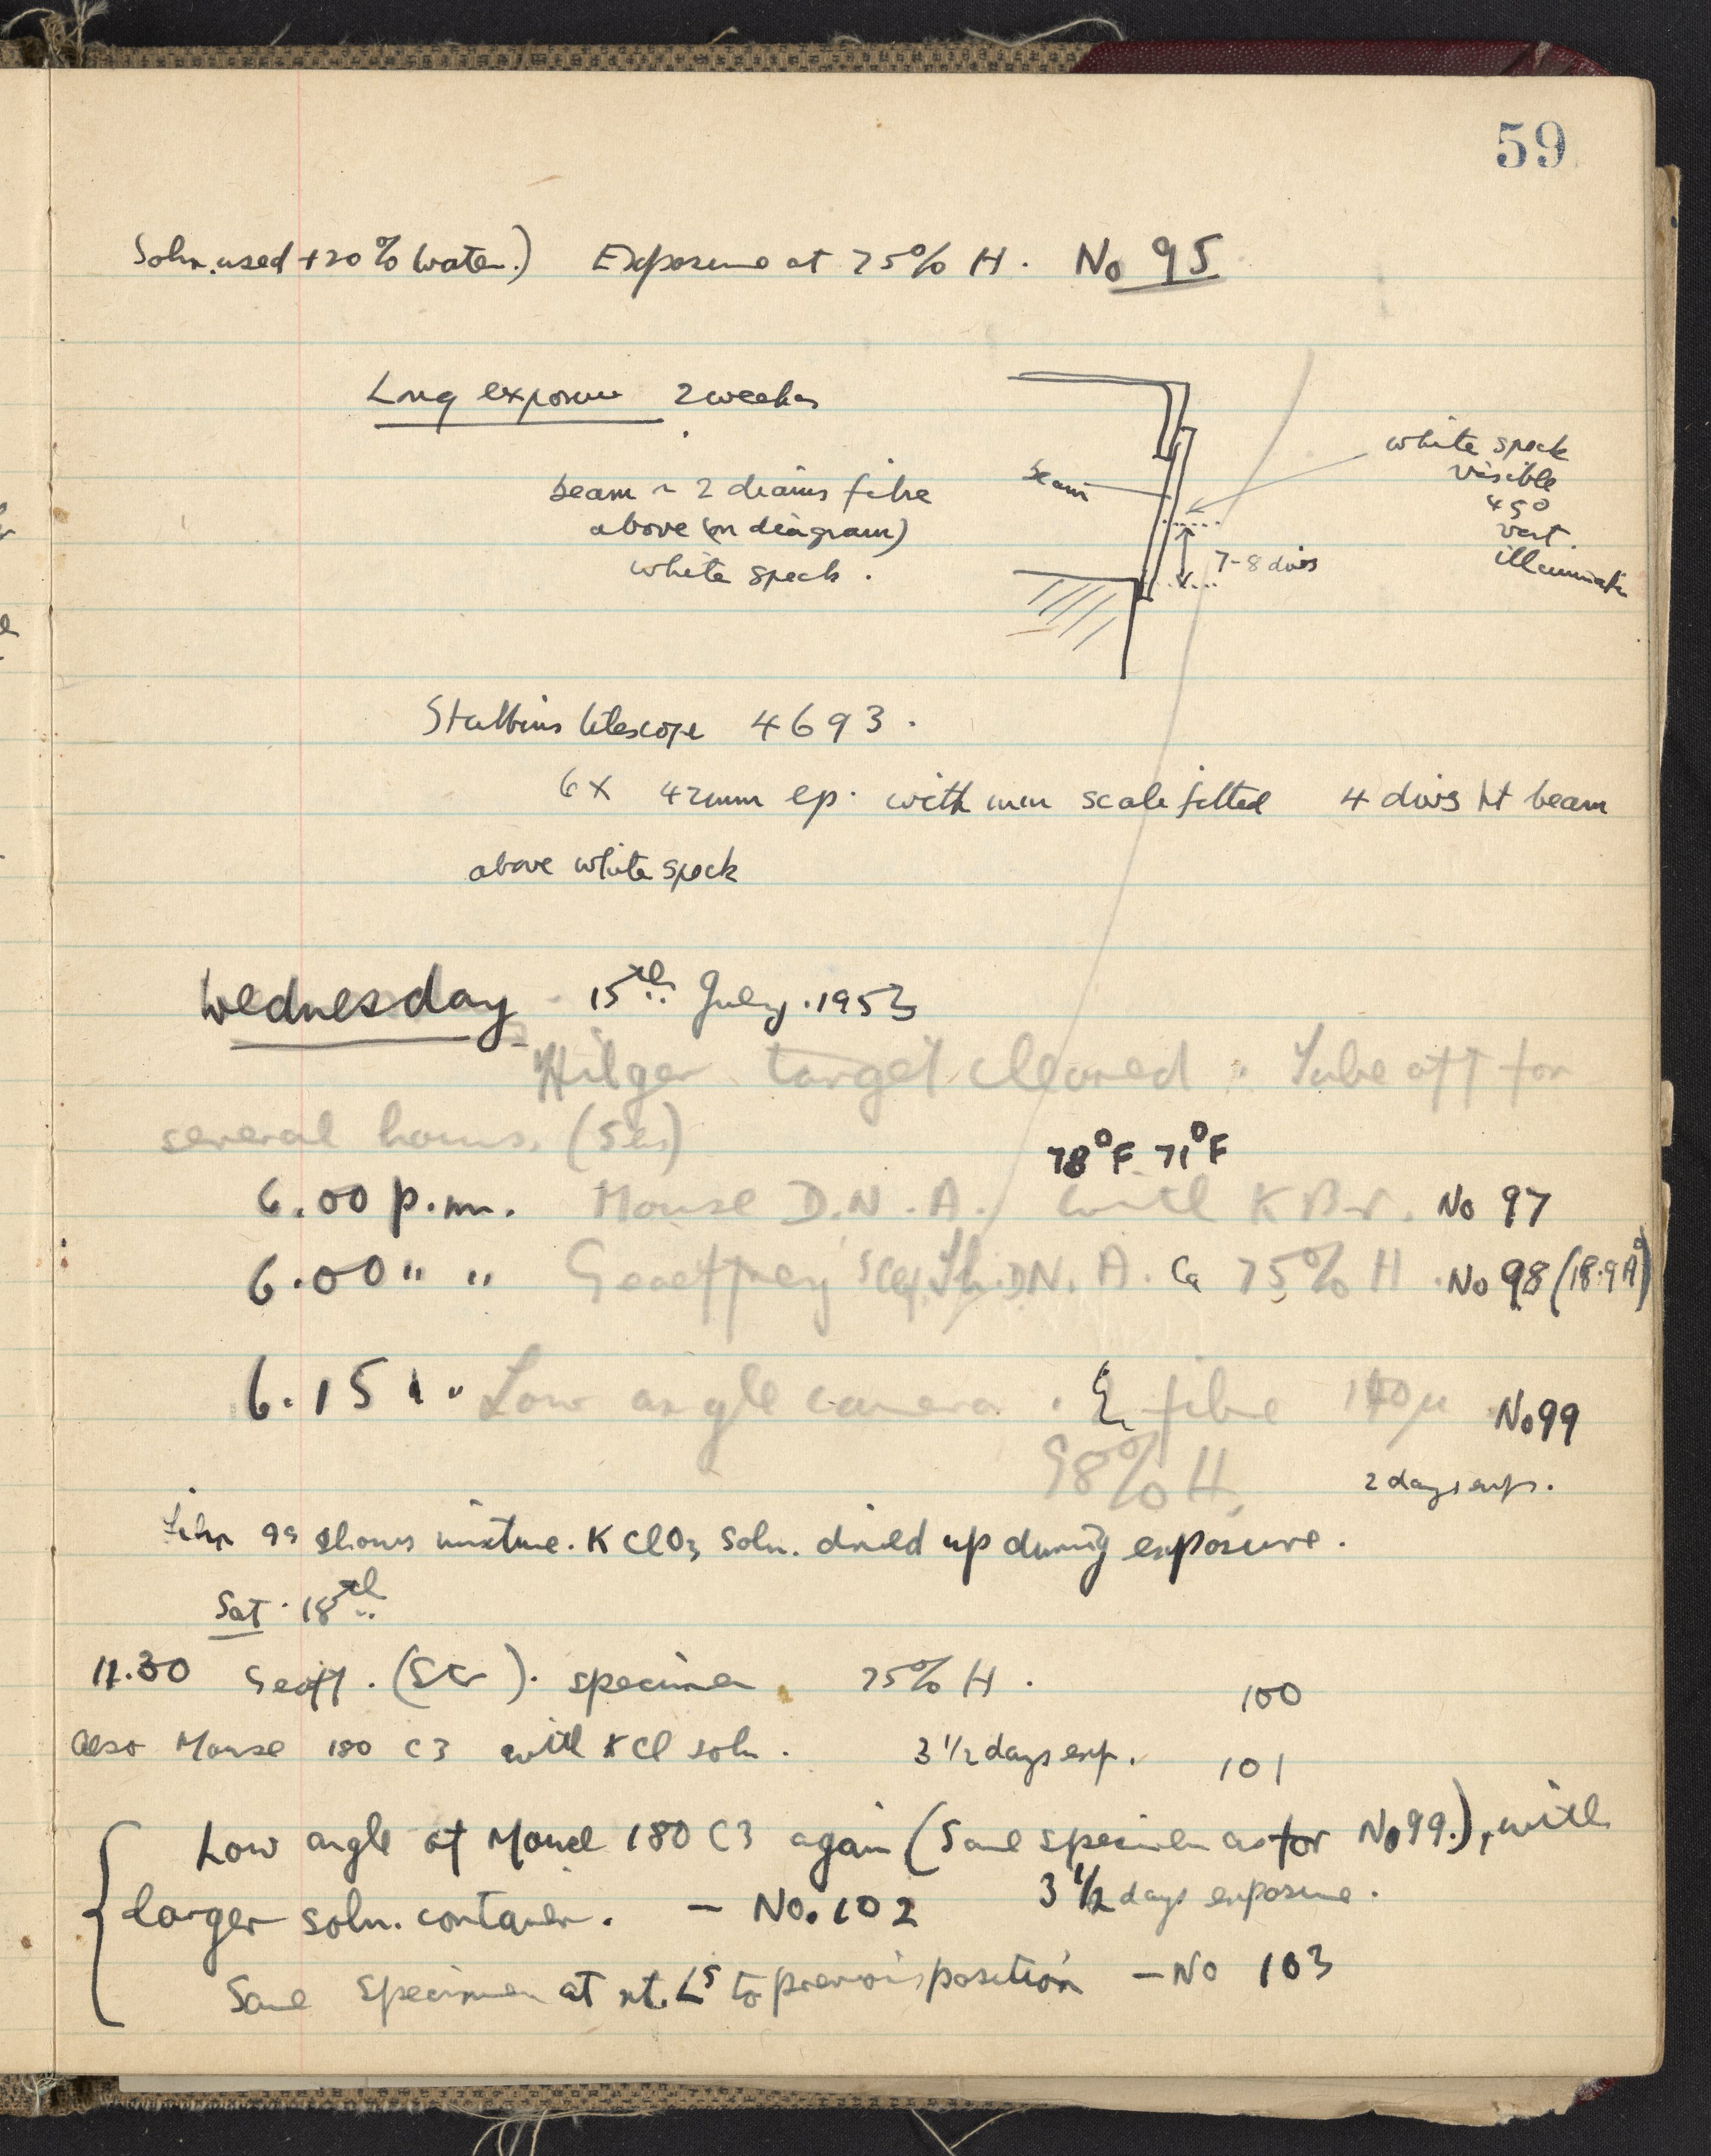 59
Soln. used + 20% water.) Exposure at 75% H. No 95
Long exposure 2 weeks
beam ~ 2 diams fibre
above (on diagram)
white speck.
beam
white speck
visible
45°
vert.
7-8 divs
Stubbins telescope 4693.
6x 42mm ep. with mm scale fitted 4 divs ht beam
above white speck
Wednesday 15th July. 1953
Hilger target cleaned. Tube off for
several hours. (5 hrs)
78°F 71°F
6.00 p.m. Mouse D.N.A. with KBr. No 97
6.00 " " Geoffrey's Th. D.N.A. Ca 75% H. No 98 (18.9 Å)
6.15 " " Low angle camera. fibre 140μ No 99
98% H.
2 days exp.
Film 99 shows mixture. KClO3 soln. dried up during exposure.
Sat. 18th
11.30 Geoff. (Sr). specimen 75% H. 100
Also Mouse 180 C3 with KCl soln. 3 1/2 days exp. 101
Low angle of Mouse 180 C3 again (Same specimen as for No 99.), with
larger soln. container. — No. 102 3 1/2 days exposure.
Same specimen at rt. ∠s to previous position — No 103